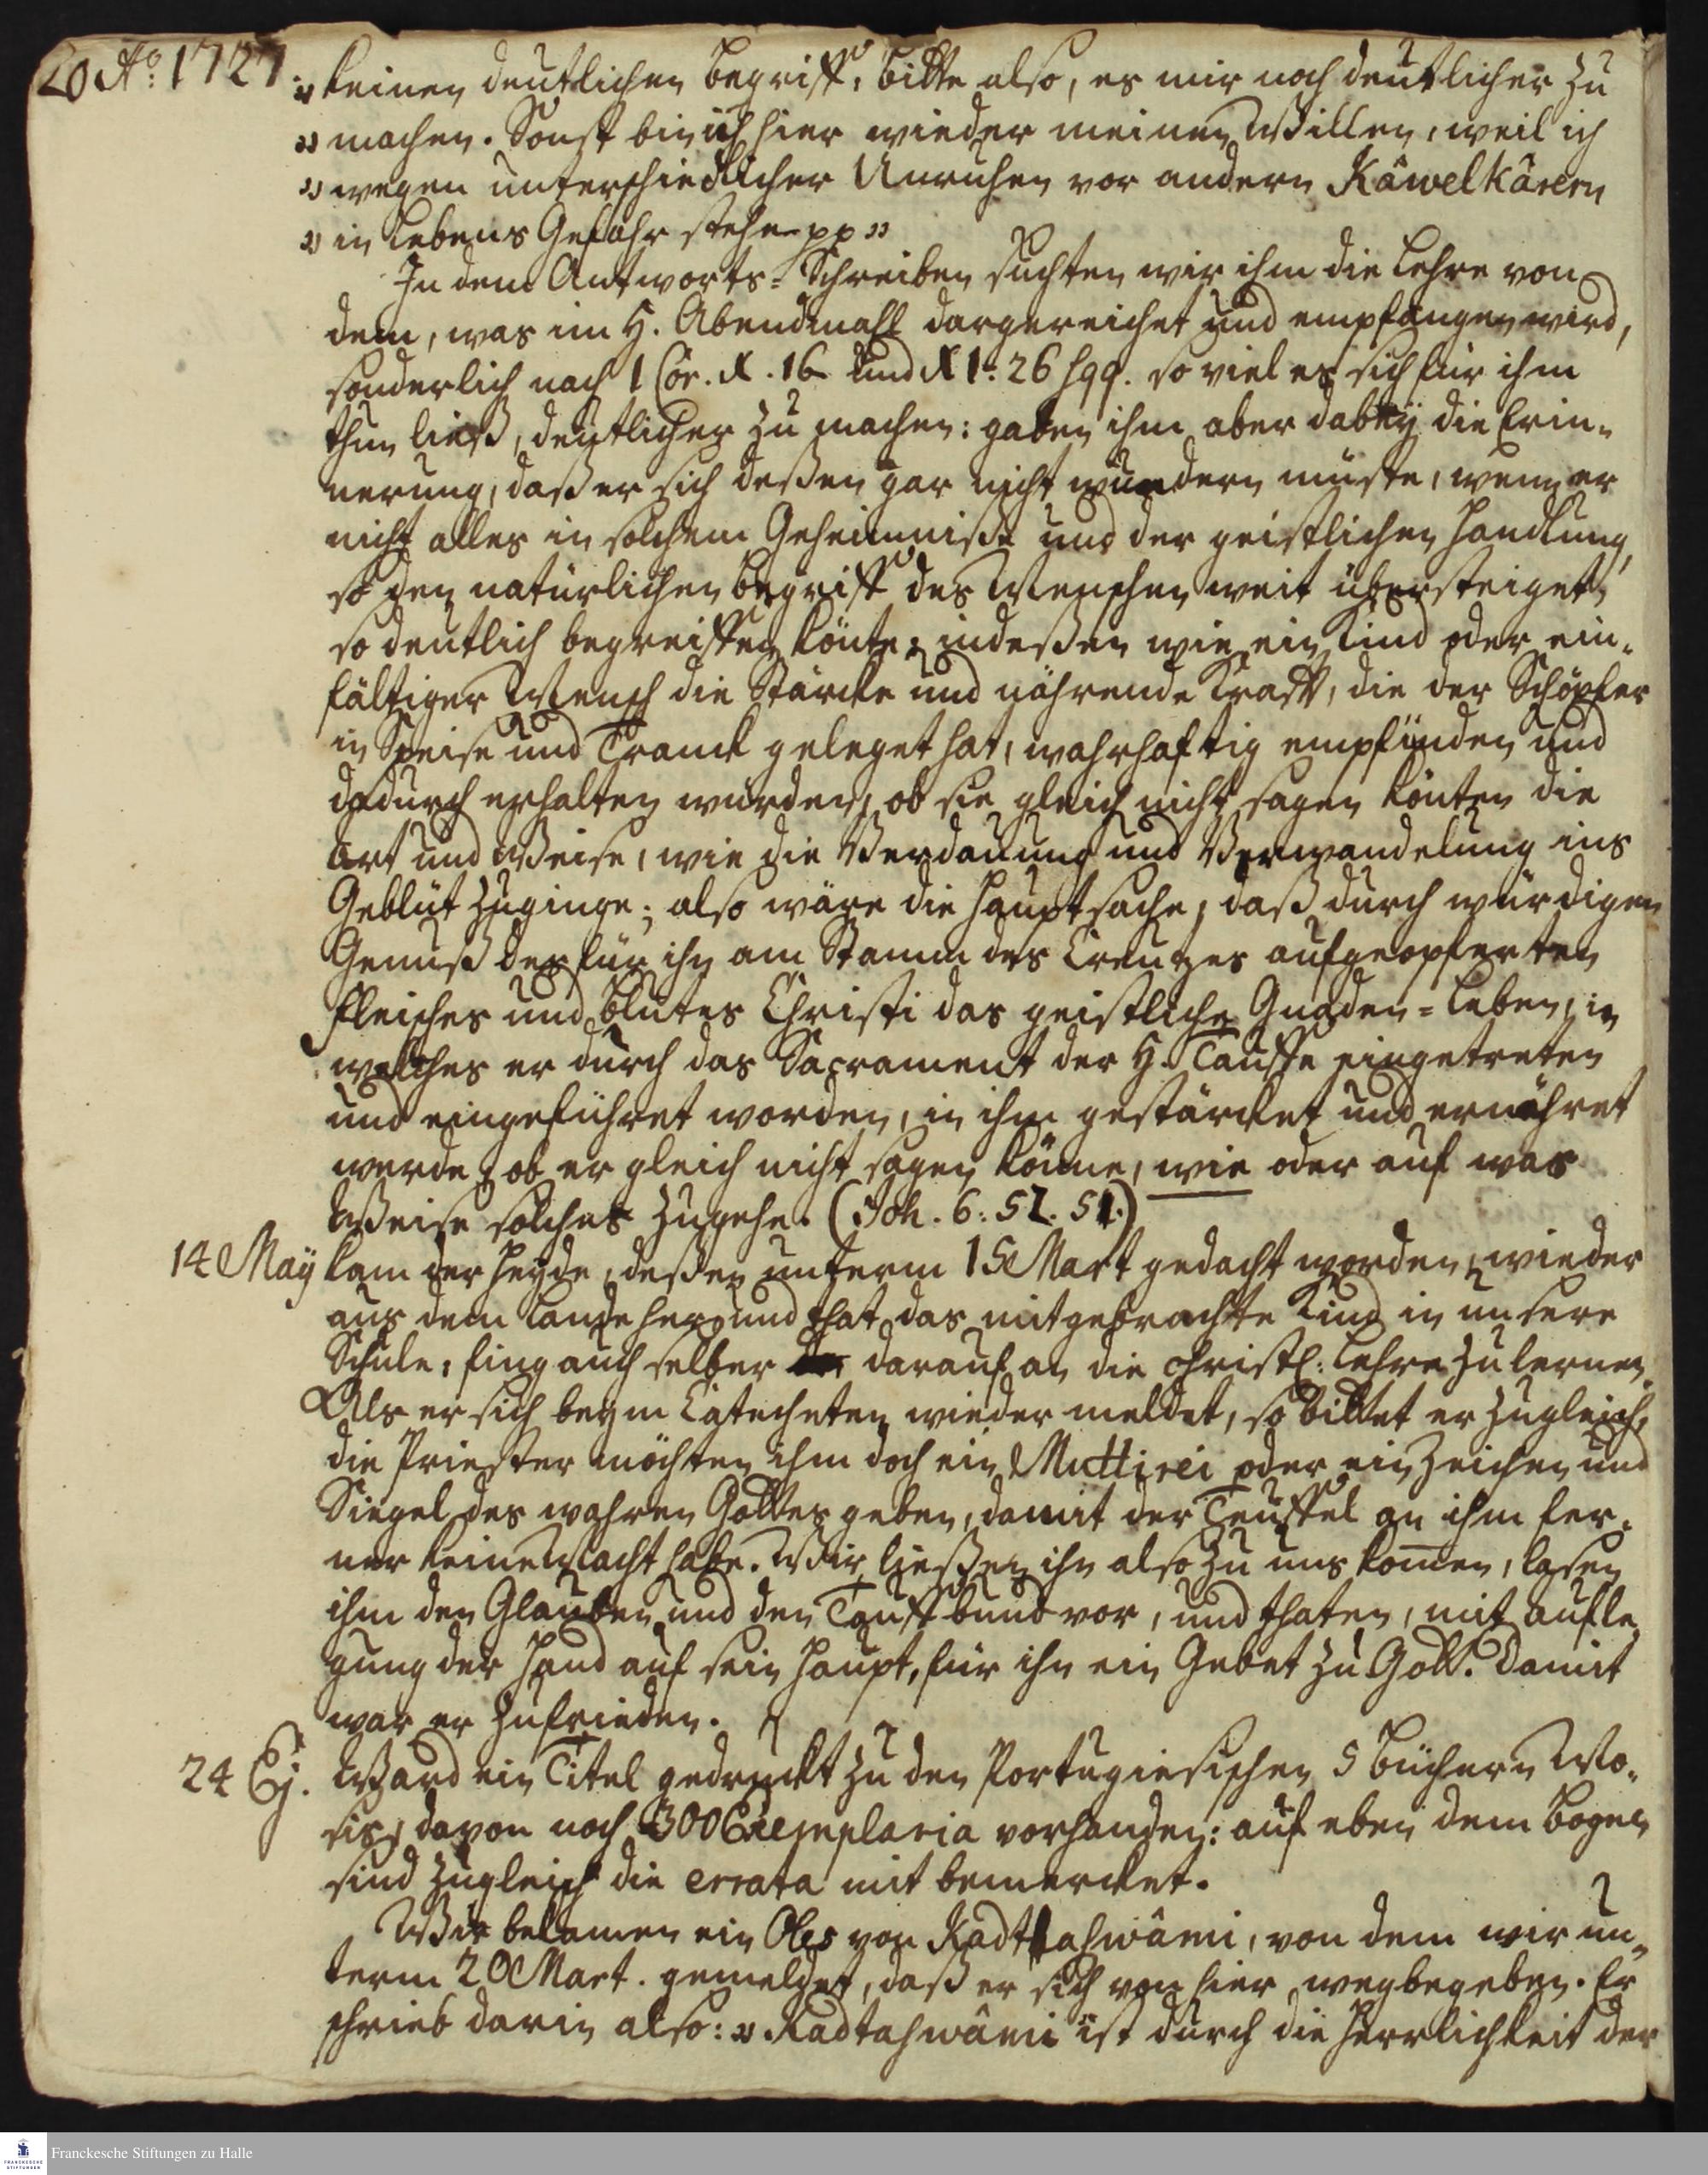 20 Aº: 1727.
„ keinen deutlichen Begriff, bitte also, es mir noch deutlicher zu
„ machen. Sonst bin ich hier wieder meinen Willen, weil ich
„ wegen unterschiedlicher Unruhen vor andern Kâwelkârern
„ in Lebens Gefahr stehe pp „
In dem Antworts-Schreiben suchten wir ihm die Lehre von
dem, was im H. Abendmahl dargereichet und empfangen wird,
sonderlich nach 1 Cor. X. 16 und XI. 26 sqq. so viel es sich für ihm
thun ließ, deutlicher zu machen: gaben ihm aber dabey die Erin-
nerung, daß er sich deßen gar nicht wundern müste, wenn er
nicht alles in solchem Geheimniße und der geistlichen Handlung,
so den natürlichen Begriff des Menschen weit übersteiget,
so deutlich begreiffen könte; indeßen wie ein Kind oder ein-
fältiger Mensch die Stärcke und nährende Krafft, die der Schöpfer
in Speise und Tranck geleget hat, wahrhaftig empfinden und
dadurch erhalten würden, ob sie gleich nicht sagen könten die
Art und Weise, wie die Verdauung und Verwandelung ins
Geblüt zuginge; also wäre die Hauptsache, daß durch würdigen
Genuß des für ihn am Stamm des Creutzes aufgeopferten
Fleisches und Blutes Christi das geistliche Gnaden-Leben, in
welches er durch das Sacrament der H. Tauffe eingetreten
und eingeführet worden, in ihm gestärcket und ernähret
werde, ob er gleich nicht sagen könne, wie oder auf was
Weise solches zugehe. (Joh. 6: 52. 51.)
14 May kam der Heyde, deßen unterm 15 Mart gedacht worden, wieder
aus dem Lande her, und that das mitgebrachte Kind in unsere
Schule, fing auch selber darauf an die christl: Lehre zu lernen.
Als er sich beym Catecheten wieder meldet, so bittet er zugleich,
die Priester möchten ihm doch ein Muttirei oder ein Zeichen und
Siegel des wahren Gottes geben, damit der Teuffel an ihm fer-
ner keine Macht habe. Wir ließen ihn also zu uns kom̅en, lasen
ihm den Glauben und den Tauffbund vor, und thaten, mit Aufle-
gung der Hand auf sein Haupt, für ihn ein Gebet zu Gott. Damit
war er zufrieden.
24 Ej. Ward ein Titel gedruckt zu den Portugiesischen 5 Büchern Mo-
sis, davon noch 300 Exemplaria vorhanden: auf eben dem Bogen
sind zugleich die errata mit bemercket.
Wir bekamen ein Oles von Kadtahwâmi, von dem wir un-
term 20 Mart. gemeldet, daß er sich von hier wegbegeben. Er
schrieb darin also: „ Kadtahwâmi ist durch die Herrlichkeit der
Franckesche Stiftungen zu Halle